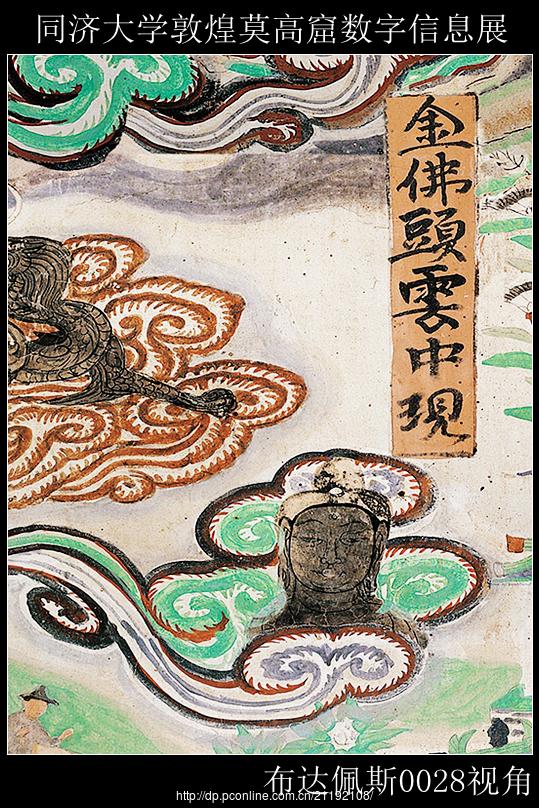 同济大学敦煌莫高窟数字信息展
金佛頭雲中現
布达佩斯0028视角
http://dp.pconline.com.cn/21192108/